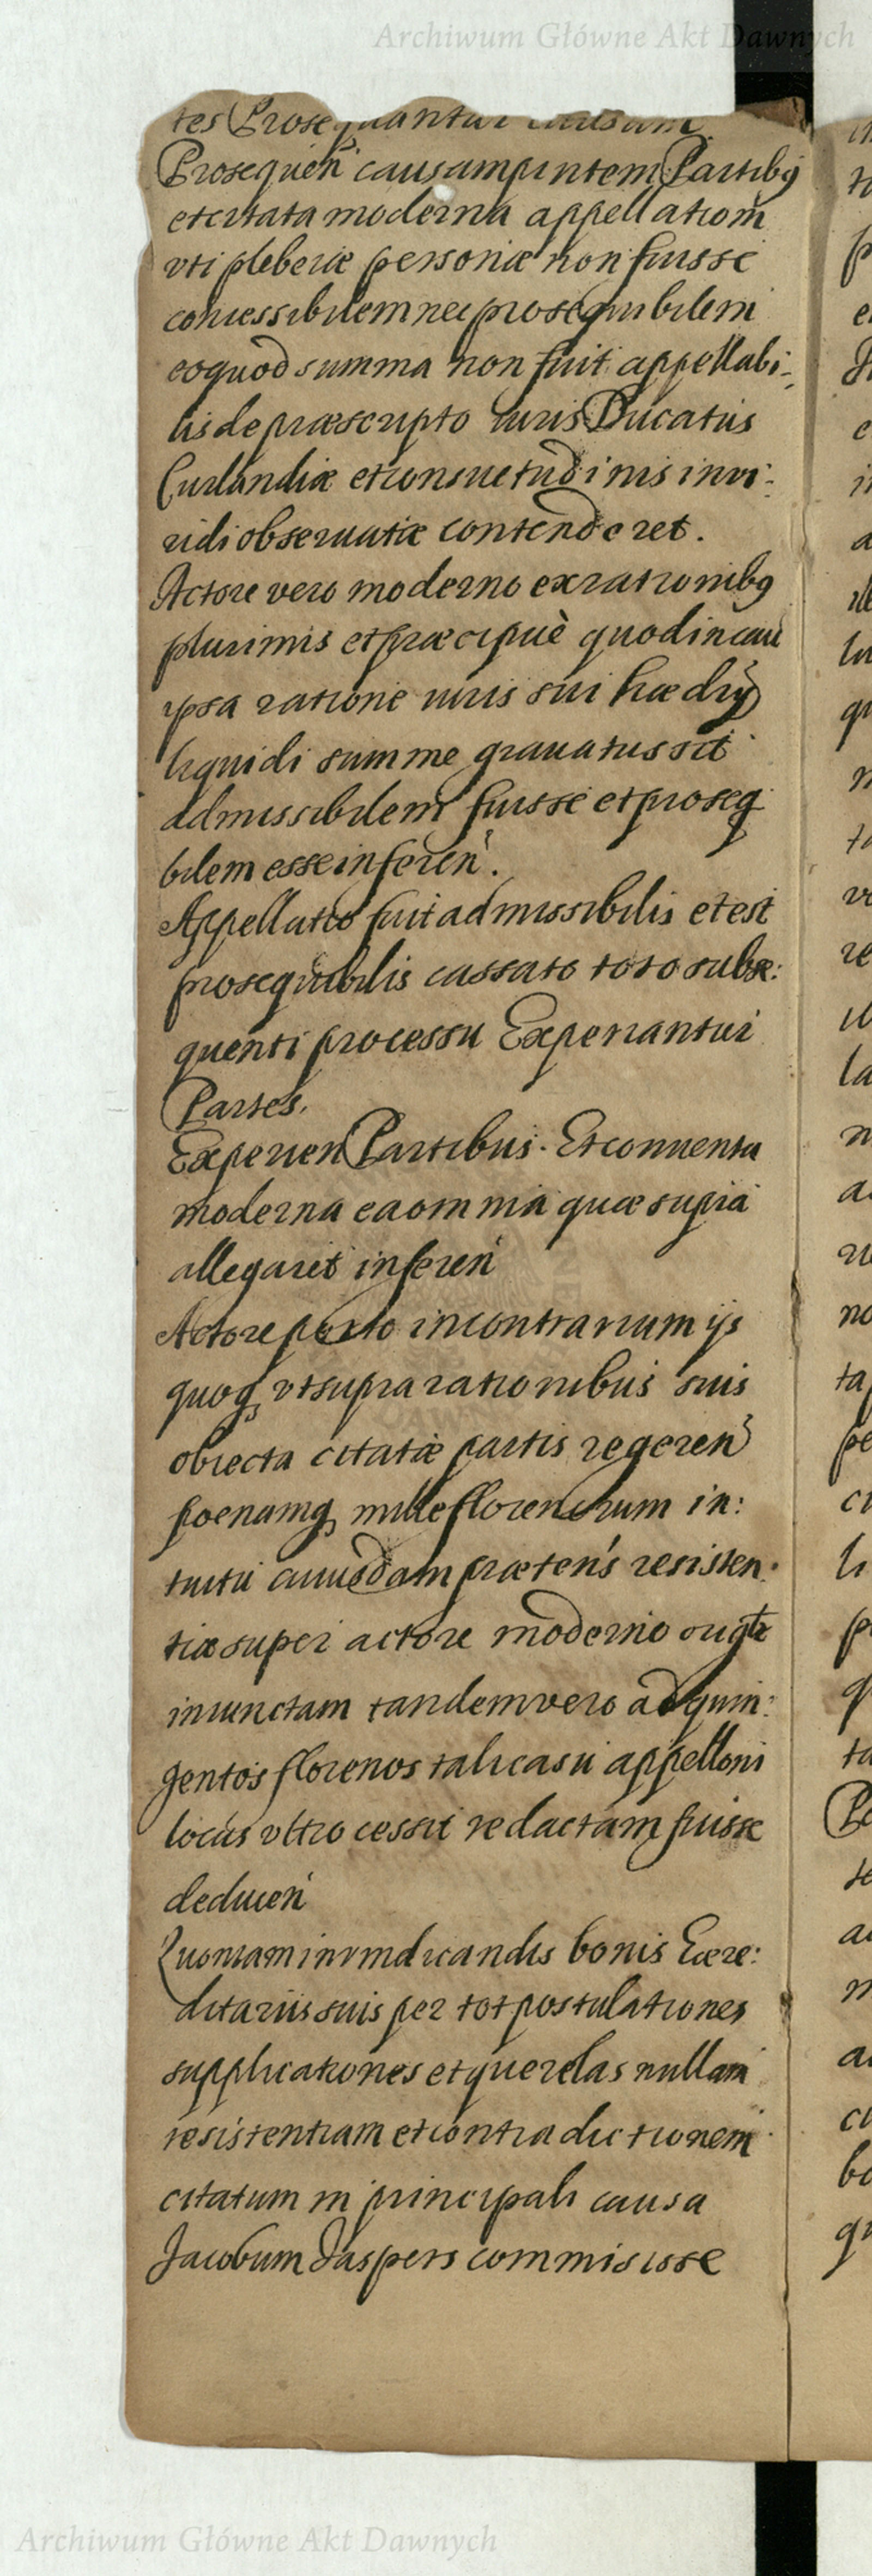 Archiwum Główne Akt Dawnych
tes Prosequantur causam.
Prosequen̄ causam p̱intem Partibꝯ
et citata moderna appellationē
vti plebeiæ personæ non fuisse
concessibilem nec prosequibilem
eoquod summa non fuit appellabi:
lis de præscripto iuris Ducatus
Curlandiæ et consuetudinis in vi:
ridi obseruatiæ contenderet.
Actore vero moderno ex rationibꝯ
plurimis et præcipuè quod in cau
ipsa ratione iuris sui hædrÿ
liquidi summe grauatus sit
admissibilem fuisse et proseq
bilem esse inferen̄.
Appellatio fuit admissibilis et est
prosequibilis cassato toto subse:
quenti processu Experiantur
Partes.
Experien Partibus. Et conuenta
moderna ea omnia quæ supra
allegarit inferen̄
Actore porro in contrarium ijs
quoq̨ vt supra rationibus suis
obiecta citatæ partis regeren̄
poenamq̨ mille florenorum in:
tuitu cuiusdam prætens resisten:
tiæ super actore moderno
iniunctam tandem vero ad quin:
gentos florenos tali casu appelloni
locus vltro cessit redactam fuisse
deducen̄
Quoniam in vindicandis bonis Hære:
ditariis suis per tot postulationes
supplicationes et querelas nullam
resistentiam et contradictionem
citatum in principali causa
Jacobum Jaspers commisisse
Archiwum Główne Akt Dawnych